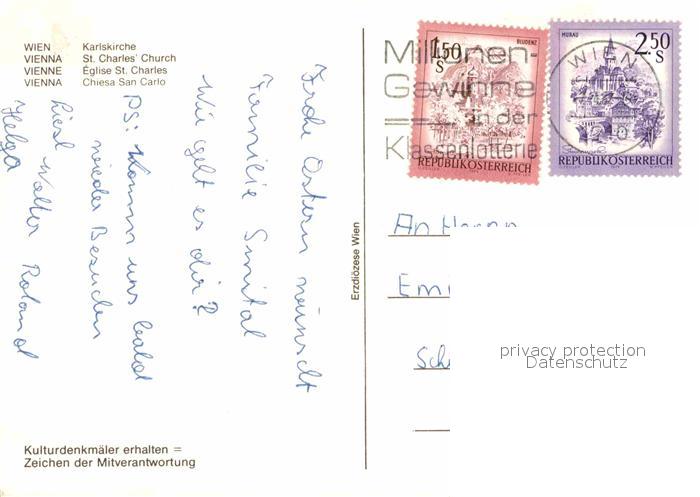 WIEN Karlskirche
VIENNA St. Charles' Church
VIENNE Église St. Charles
VIENNA Chiesa San Carlo
Frohe Ostern wünscht
Familie Smital
Wie geht es dir?
PS: Komm uns bald
wieder Besuchen
Liesl Walter Roland
Helga
Kulturdenkmäler erhalten =
Zeichen der Mitverantwortung
Erzdiözese Wien
Millionen-
Gewinne
in der
Klassenlotterie
1.50
S
BLUDENZ
REPUBLIK ÖSTERREICH
MURAU
2.50
S
WIEN
REPUBLIK ÖSTERREICH
An Herrn
Emi
Sch
privacy protection
Datenschutz